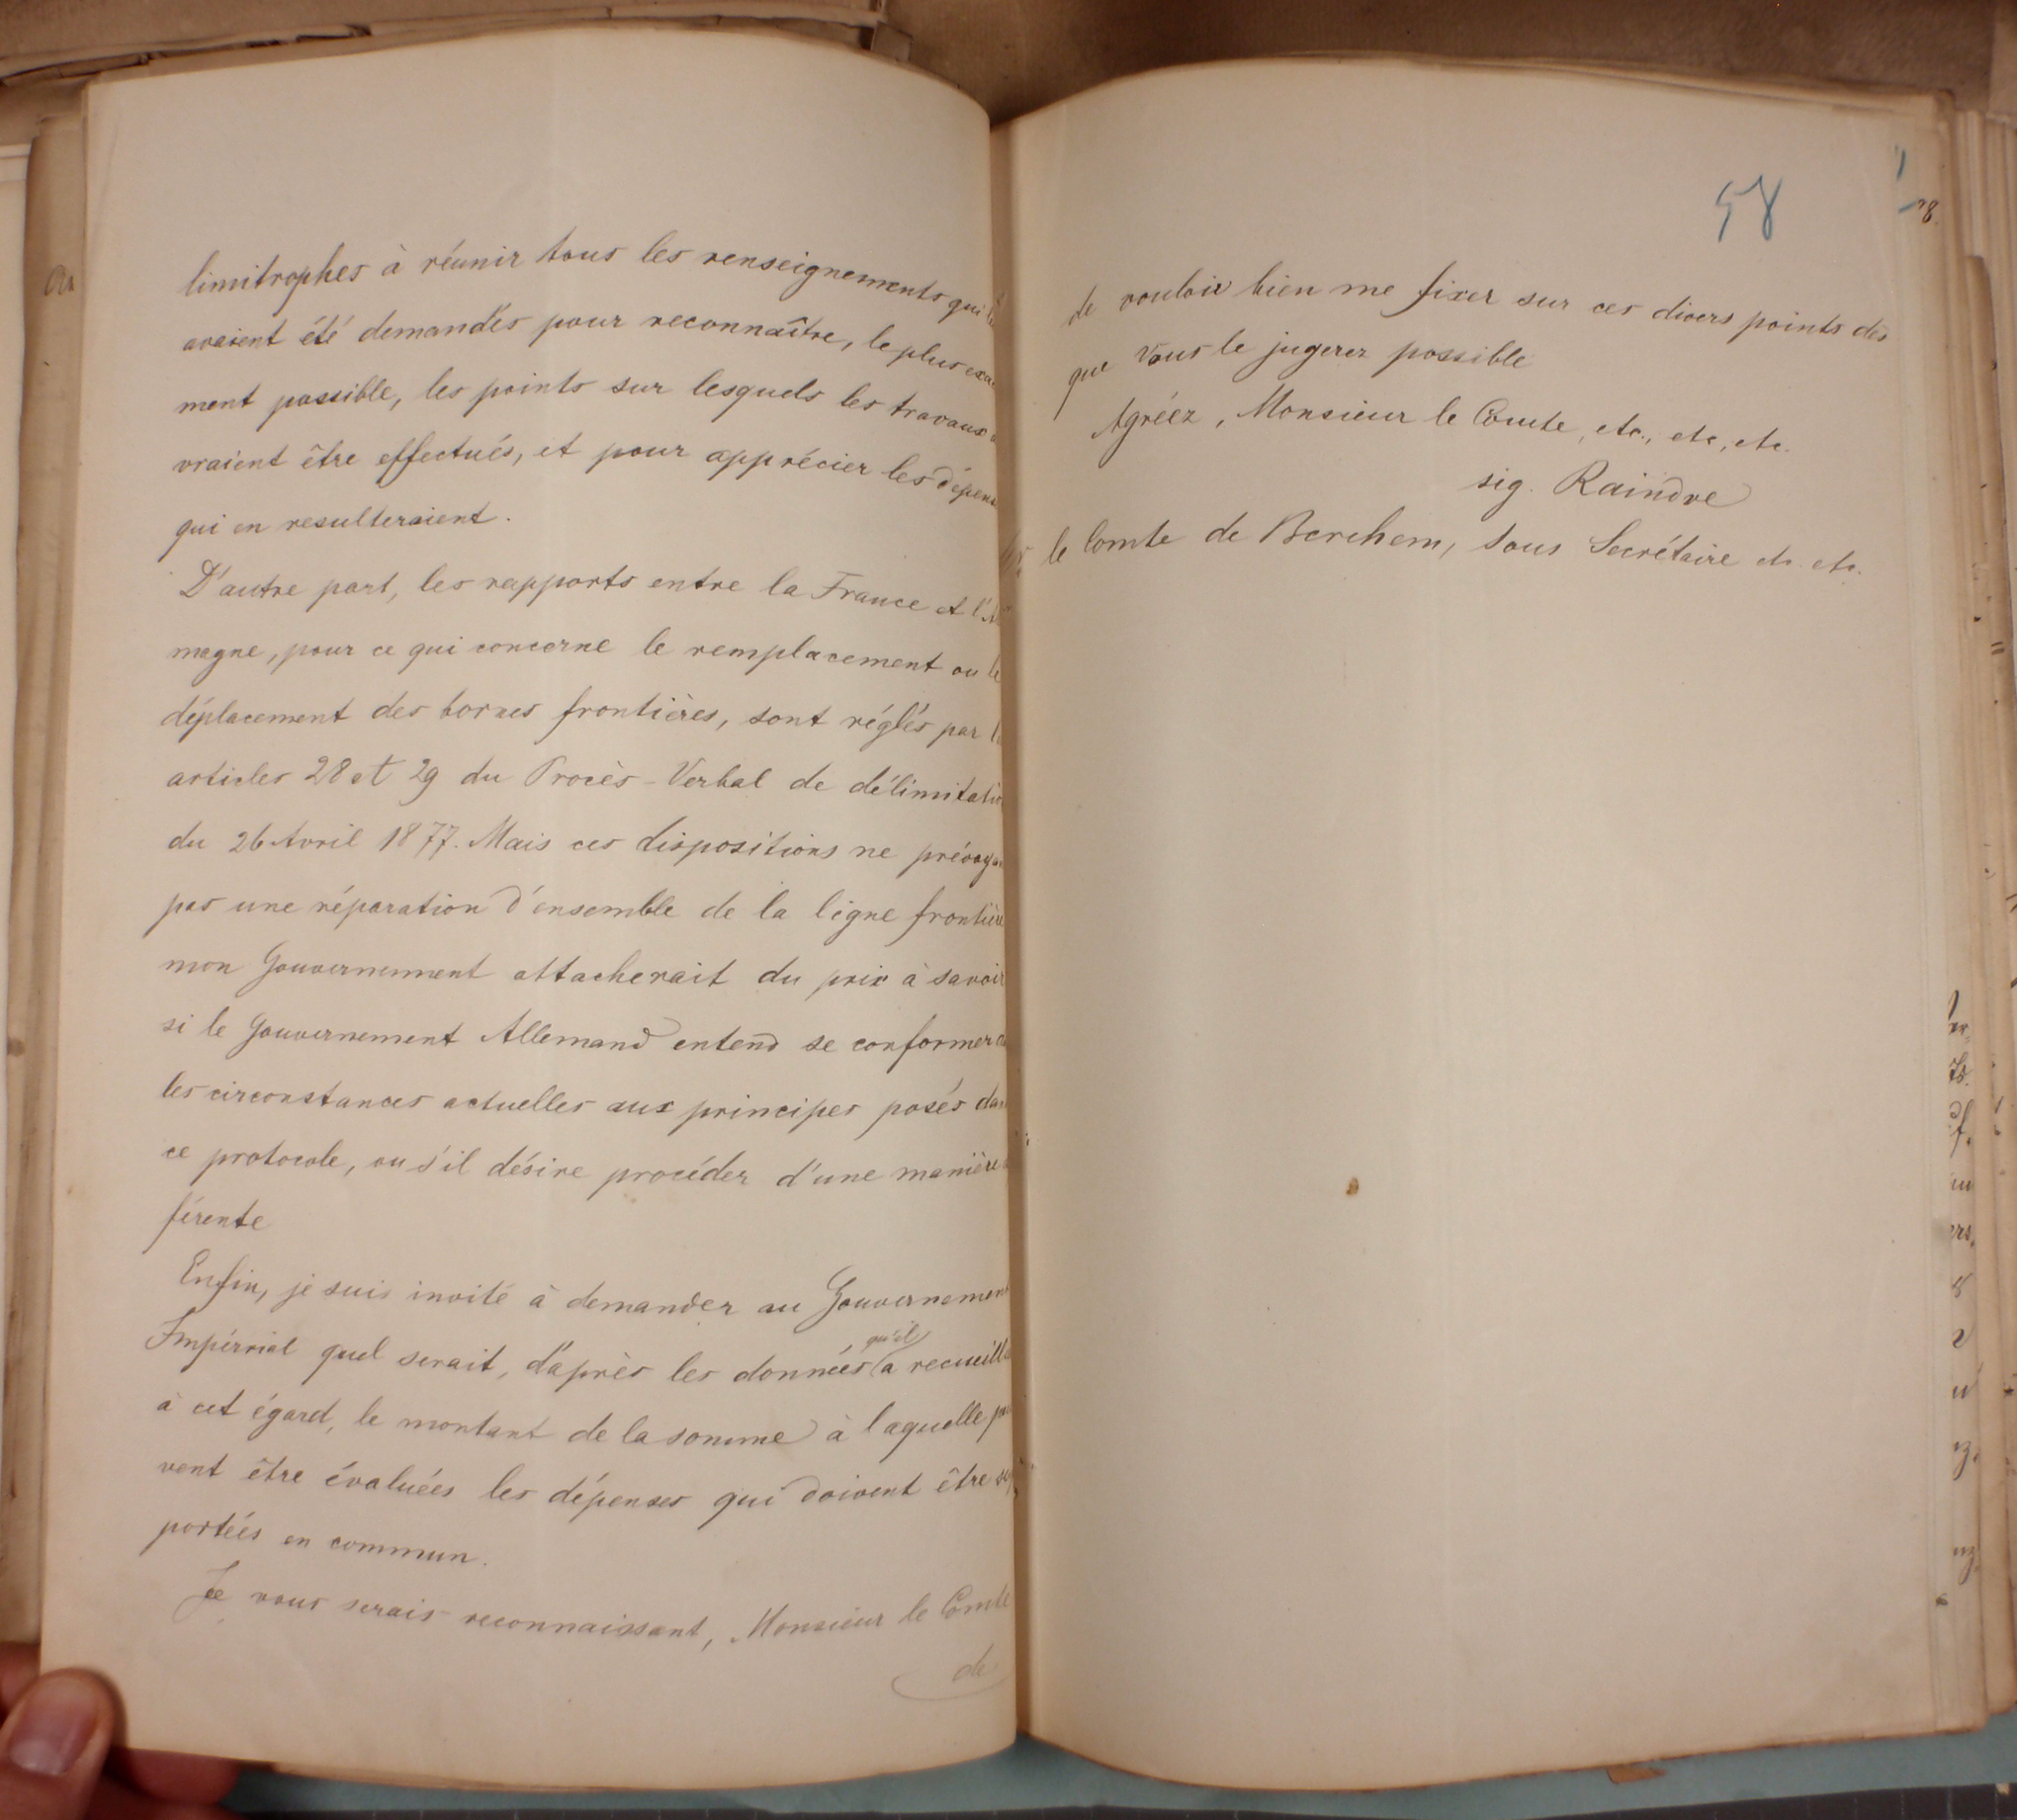 limitrophes à réunir tous les renseignements qui
avaient été demandés pour reconnaître, le plus exa
ment possible, les points sur lesquels les travaux
vraient être effectués, et pour apprécier les dépens
qui en resulteraient.
D'autre part, les rapports entre la France et l'
magne, pour ce qui concerne le remplacement ou le
déplacement des bornes frontières, sont réglés par
articles 28 et 29 du Procès-Verbal de délimitatio
du 26 Avril 1877. Mais ces dispositions ne prévoya
pas une réparation d'ensemble de la ligne frontière
mon Gouvernement attacherait du prix à savoir
si le Gouvernement Allemand entend se conformer
les circonstances actuelles aux principes posés dan
ce protocole, ou s'il désire procéder d'une manière
férente
Enfin, je suis invité à demander au Gouvernement
Impérrial quel serait, d'après les données qu'il a recueill
à cet égard, le montant de la somme à laquelle
vent être évaluées les dépenses qui doivent être
portées en commun.
Je vous serais reconnaissant, Monsieur le Comte
de
58
de vouloir bien me fixer sur ces divers points dès
que Vous le jugerez possible
Agréez, Monsieur le Comte, etc., etc, etc.
sig. Raindre
le Comte de Berchem, Sous Secrétaire etc. etc.